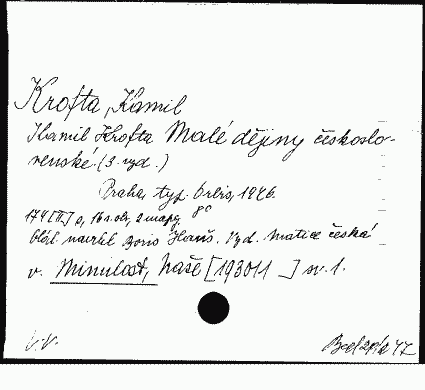 Krofta, Kamil
Kamil Krofta Malé dějiny českoslo-
venské. (3. vyd.)
Praha, typ. Orbis, 1946.
8°
174 [II] s, 16 obr. 2 mapy
obál. navrhl Boris Hanš. Vyd. Matice česká
v. Minulost, Naše [193011 ] sv. 1.
V.V.
47